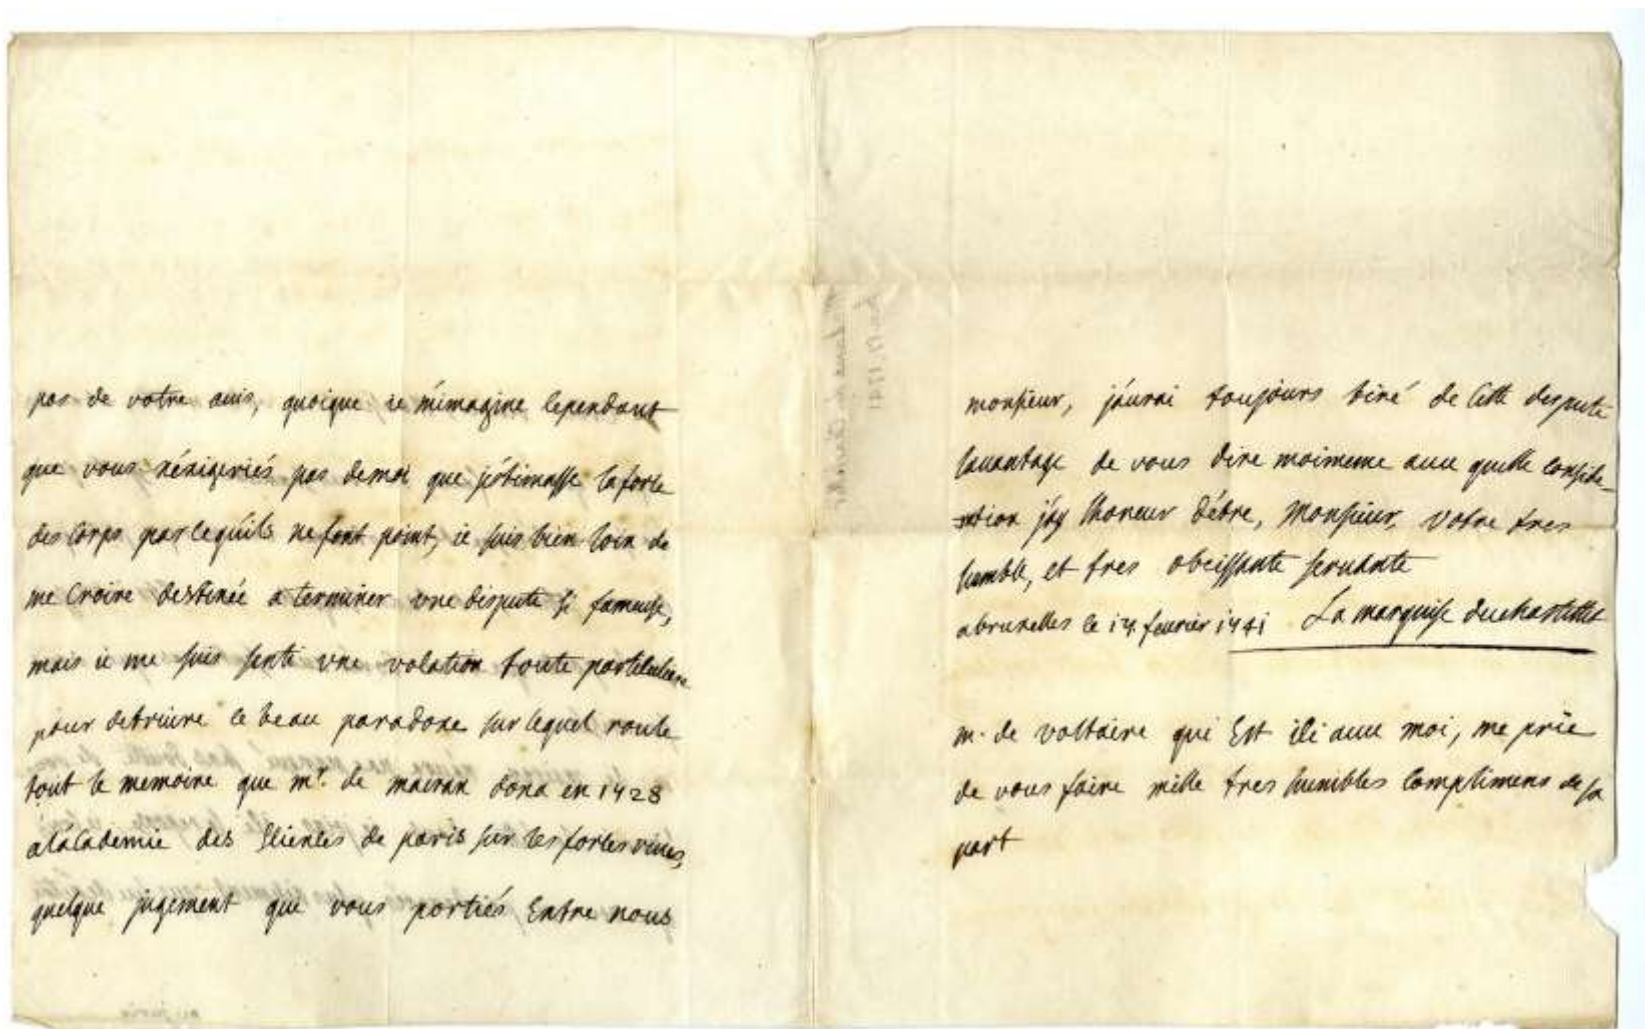 pas de votre auis, quoique ie m'imagine cependant
que vous n'éxigeriés pas de moi que j'estimasse la force
des corps par ce qu'ils ne font point, ie suis bien loin de
me croire destinée a terminer vne dispute si fameuse,
mais ie me suis senti vne vocation toute particuliere
pour detruire le beau paradoxe sur lequel roule
tout le memoire que mr. de mairan dona en 1728
a l'academie des Sciences de paris sur les forces viues,
quelque jugement que vous portiés Entre nous
monsieur, j'aurai toujours tiré de cette dispute
l'auantage de vous dire moimeme auec quelle conside-
ration j'ay l'honeur d'être, Monsieur, votre tres
humble, et tres obeissante seruante
a bruxelles le 17 feurier 1741 La marquise du chastellet
m. de voltaire qui Est ici auec moi, me prie
de vous faire mille tres humbles complimens de sa
part